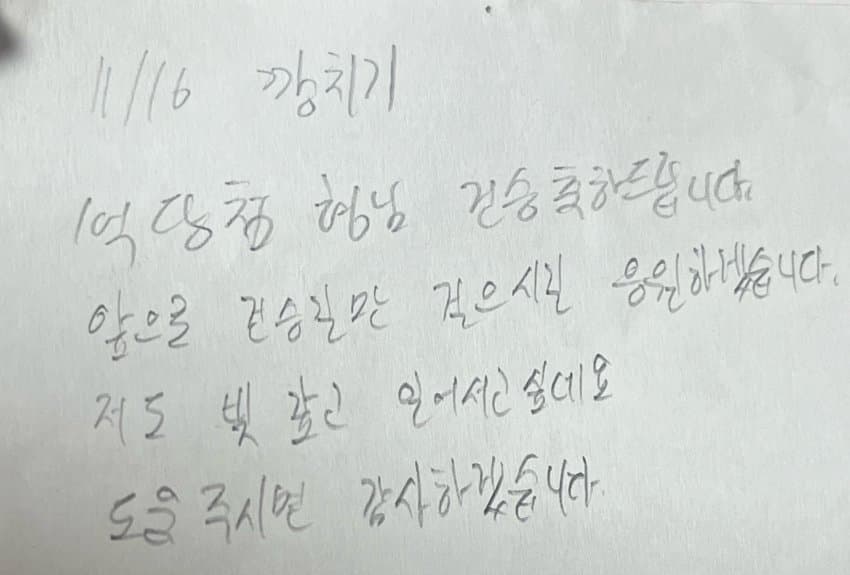 11/16 깡치기
1억 당첨 형님 건승 축하드립니다.
앞으로 건승길만 걸으시길 응원하겠습니다.
저도 빚 갚고 일어서고 싶네요
도움 주시면 감사하겠습니다.